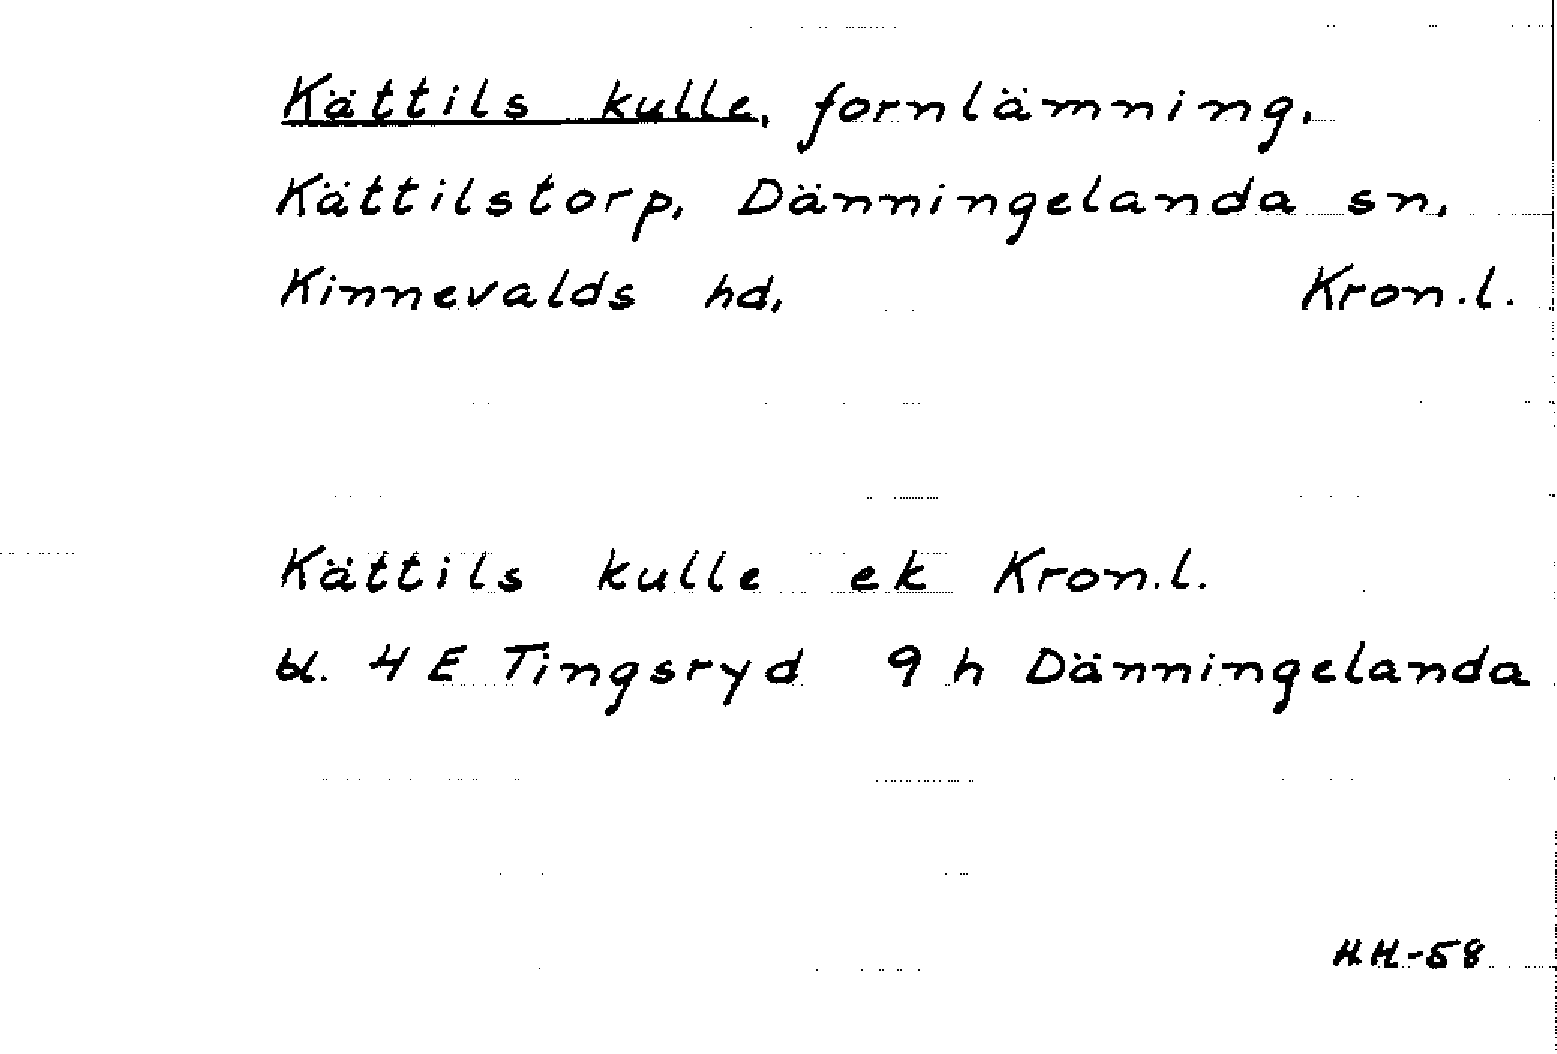 Kättils kulle, fornlämning,
Kättilstorp, Dänningelanda sn,
Kinnevalds hd, Kron.l.
Kättils kulle ek Kron.l.
bl. 4 E Tingsryd 9 h Dänningelanda
HH-58